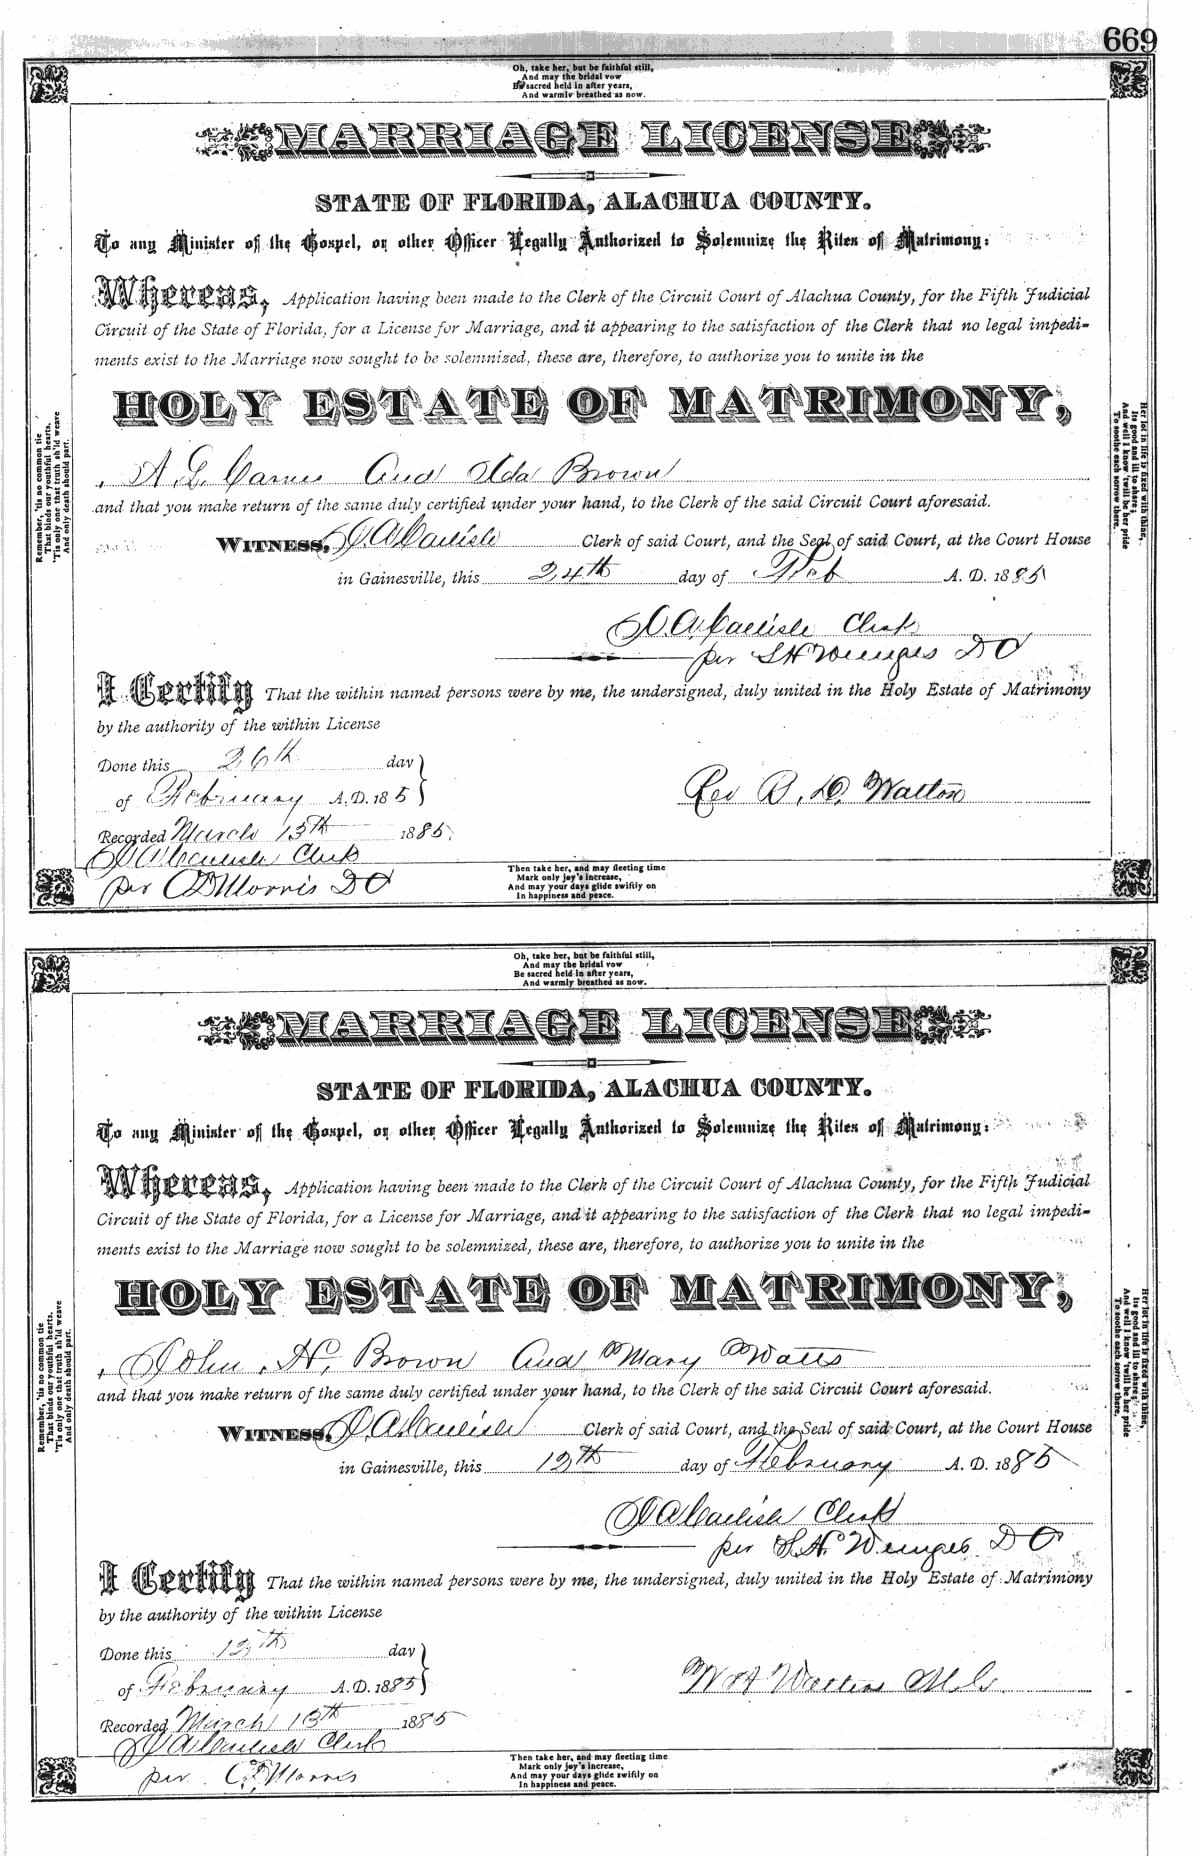 669
Oh, take her, but be faithful still,
And may the bridal vow
Be sacred held in after years,
And warmly breathed as now.
MARRIAGE LICENSE
STATE OF FLORIDA, ALACHUA COUNTY.
To any Minister of the Gospel, or other Officer Legally Authorized to Solemnize the Rites of Matrimony:
Whereas, Application having been made to the Clerk of the Circuit Court of Alachua County, for the Fifth Judicial
Circuit of the State of Florida, for a License for Marriage, and it appearing to the satisfaction of the Clerk that no legal impedi-
ments exist to the Marriage now sought to be solemnized, these are, therefore, to authorize you to unite in the
HOLY ESTATE OF MATRIMONY,
A. L. And Ida Brown
and that you make return of the same duly certified under your hand, to the Clerk of the said Circuit Court aforesaid.
WITNESS, J. A. Carlisle Clerk of said Court, and the Seal of said Court, at the Court House
in Gainesville, this 24th day of Feb A. D. 1885
J. A. Carlisle Clerk
per S H Wienges D C
I Certify That the within named persons were by me, the undersigned, duly united in the Holy Estate of Matrimony
by the authority of the within License
Done this 26th day
of February A. D. 18 5
Rev B. D. Walton
Recorded March 13th 1885
J A Carlisle Clerk
per Morris D C
Remember, 'tis no common tie
That binds our youthful hearts,
'Tis only one that truth sh'ld weave
And only death should part.
Her lot in life is fixed with thine,
Its good and ill to share;
And well I know 'twill be her pride
To soothe each sorrow there.
Then take her, and may fleeting time
Mark only joy's increase,
And may your days glide swiftly on
In happiness and peace.
Oh, take her, but be faithful still,
And may the bridal vow
Be sacred held in after years,
And warmly breathed as now.
MARRIAGE LICENSE
STATE OF FLORIDA, ALACHUA COUNTY.
To any Minister of the Gospel, or other Officer Legally Authorized to Solemnize the Rites of Matrimony:
Whereas, Application having been made to the Clerk of the Circuit Court of Alachua County, for the Fifth Judicial
Circuit of the State of Florida, for a License for Marriage, and it appearing to the satisfaction of the Clerk that no legal impedi-
ments exist to the Marriage now sought to be solemnized, these are, therefore, to authorize you to unite in the
HOLY ESTATE OF MATRIMONY,
John H. Brown And Mary Watts
and that you make return of the same duly certified under your hand, to the Clerk of the said Circuit Court aforesaid.
WITNESS, J. A. Carlisle Clerk of said Court, and the Seal of said Court, at the Court House
in Gainesville, this 12th day of February A. D. 1885
J A Carlisle Clerk
per S. H. Wienges D C
I Certify That the within named persons were by me, the undersigned, duly united in the Holy Estate of Matrimony
by the authority of the within License
Done this 12th day
of February A. D. 1885
W H
Recorded March 13th 1885
J A Carlisle Clerk
per Morris
Remember, 'tis no common tie
That binds our youthful hearts.
'Tis only one that truth sh'ld weave
And only death should part.
Her lot in life is fixed with thine,
Its good and ill to share;
And well I know 'twill be her pride
To soothe each sorrow there.
Then take her, and may fleeting time
Mark only joy's increase,
And may your days glide swiftly on
In happiness and peace.